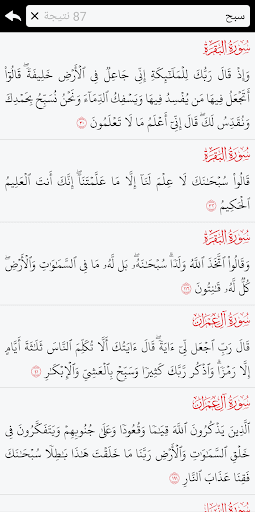 سبح
× 87 نتيجة
سُورَةُ البَقَرَةِ
وَإِذْ قَالَ رَبُّكَ لِلْمَلَٰٓئِكَةِ إِنِّى جَاعِلٌ فِى ٱلْأَرْضِ خَلِيفَةً ۖ قَالُوٓا۟
أَتَجْعَلُ فِيهَا مَن يُفْسِدُ فِيهَا وَيَسْفِكُ ٱلدِّمَآءَ وَنَحْنُ نُسَبِّحُ بِحَمْدِكَ
وَنُقَدِّسُ لَكَ ۖ قَالَ إِنِّىٓ أَعْلَمُ مَا لَا تَعْلَمُونَ ٣٠
سُورَةُ البَقَرَةِ
قَالُوا۟ سُبْحَٰنَكَ لَا عِلْمَ لَنَآ إِلَّا مَا عَلَّمْتَنَآ ۖ إِنَّكَ أَنتَ ٱلْعَلِيمُ
ٱلْحَكِيمُ ٣٢
سُورَةُ البَقَرَةِ
وَقَالُوا۟ ٱتَّخَذَ ٱللَّهُ وَلَدًا ۗ سُبْحَٰنَهُۥ ۖ بَل لَّهُۥ مَا فِى ٱلسَّمَٰوَٰتِ وَٱلْأَرْضِ ۖ
كُلٌّ لَّهُۥ قَٰنِتُونَ ١١٦
سُورَةُ آلِ عِمۡرَانَ
قَالَ رَبِّ ٱجْعَل لِّىٓ ءَايَةً ۖ قَالَ ءَايَتُكَ أَلَّا تُكَلِّمَ ٱلنَّاسَ ثَلَٰثَةَ أَيَّامٍ
إِلَّا رَمْزًا ۗ وَٱذْكُر رَّبَّكَ كَثِيرًا وَسَبِّحْ بِٱلْعَشِىِّ وَٱلْإِبْكَٰرِ ٤١
سُورَةُ آلِ عِمۡرَانَ
ٱلَّذِينَ يَذْكُرُونَ ٱللَّهَ قِيَٰمًا وَقُعُودًا وَعَلَىٰ جُنُوبِهِمْ وَيَتَفَكَّرُونَ فِى
خَلْقِ ٱلسَّمَٰوَٰتِ وَٱلْأَرْضِ رَبَّنَا مَا خَلَقْتَ هَٰذَا بَٰطِلًا سُبْحَٰنَكَ
فَقِنَا عَذَابَ ٱلنَّارِ ١٩١